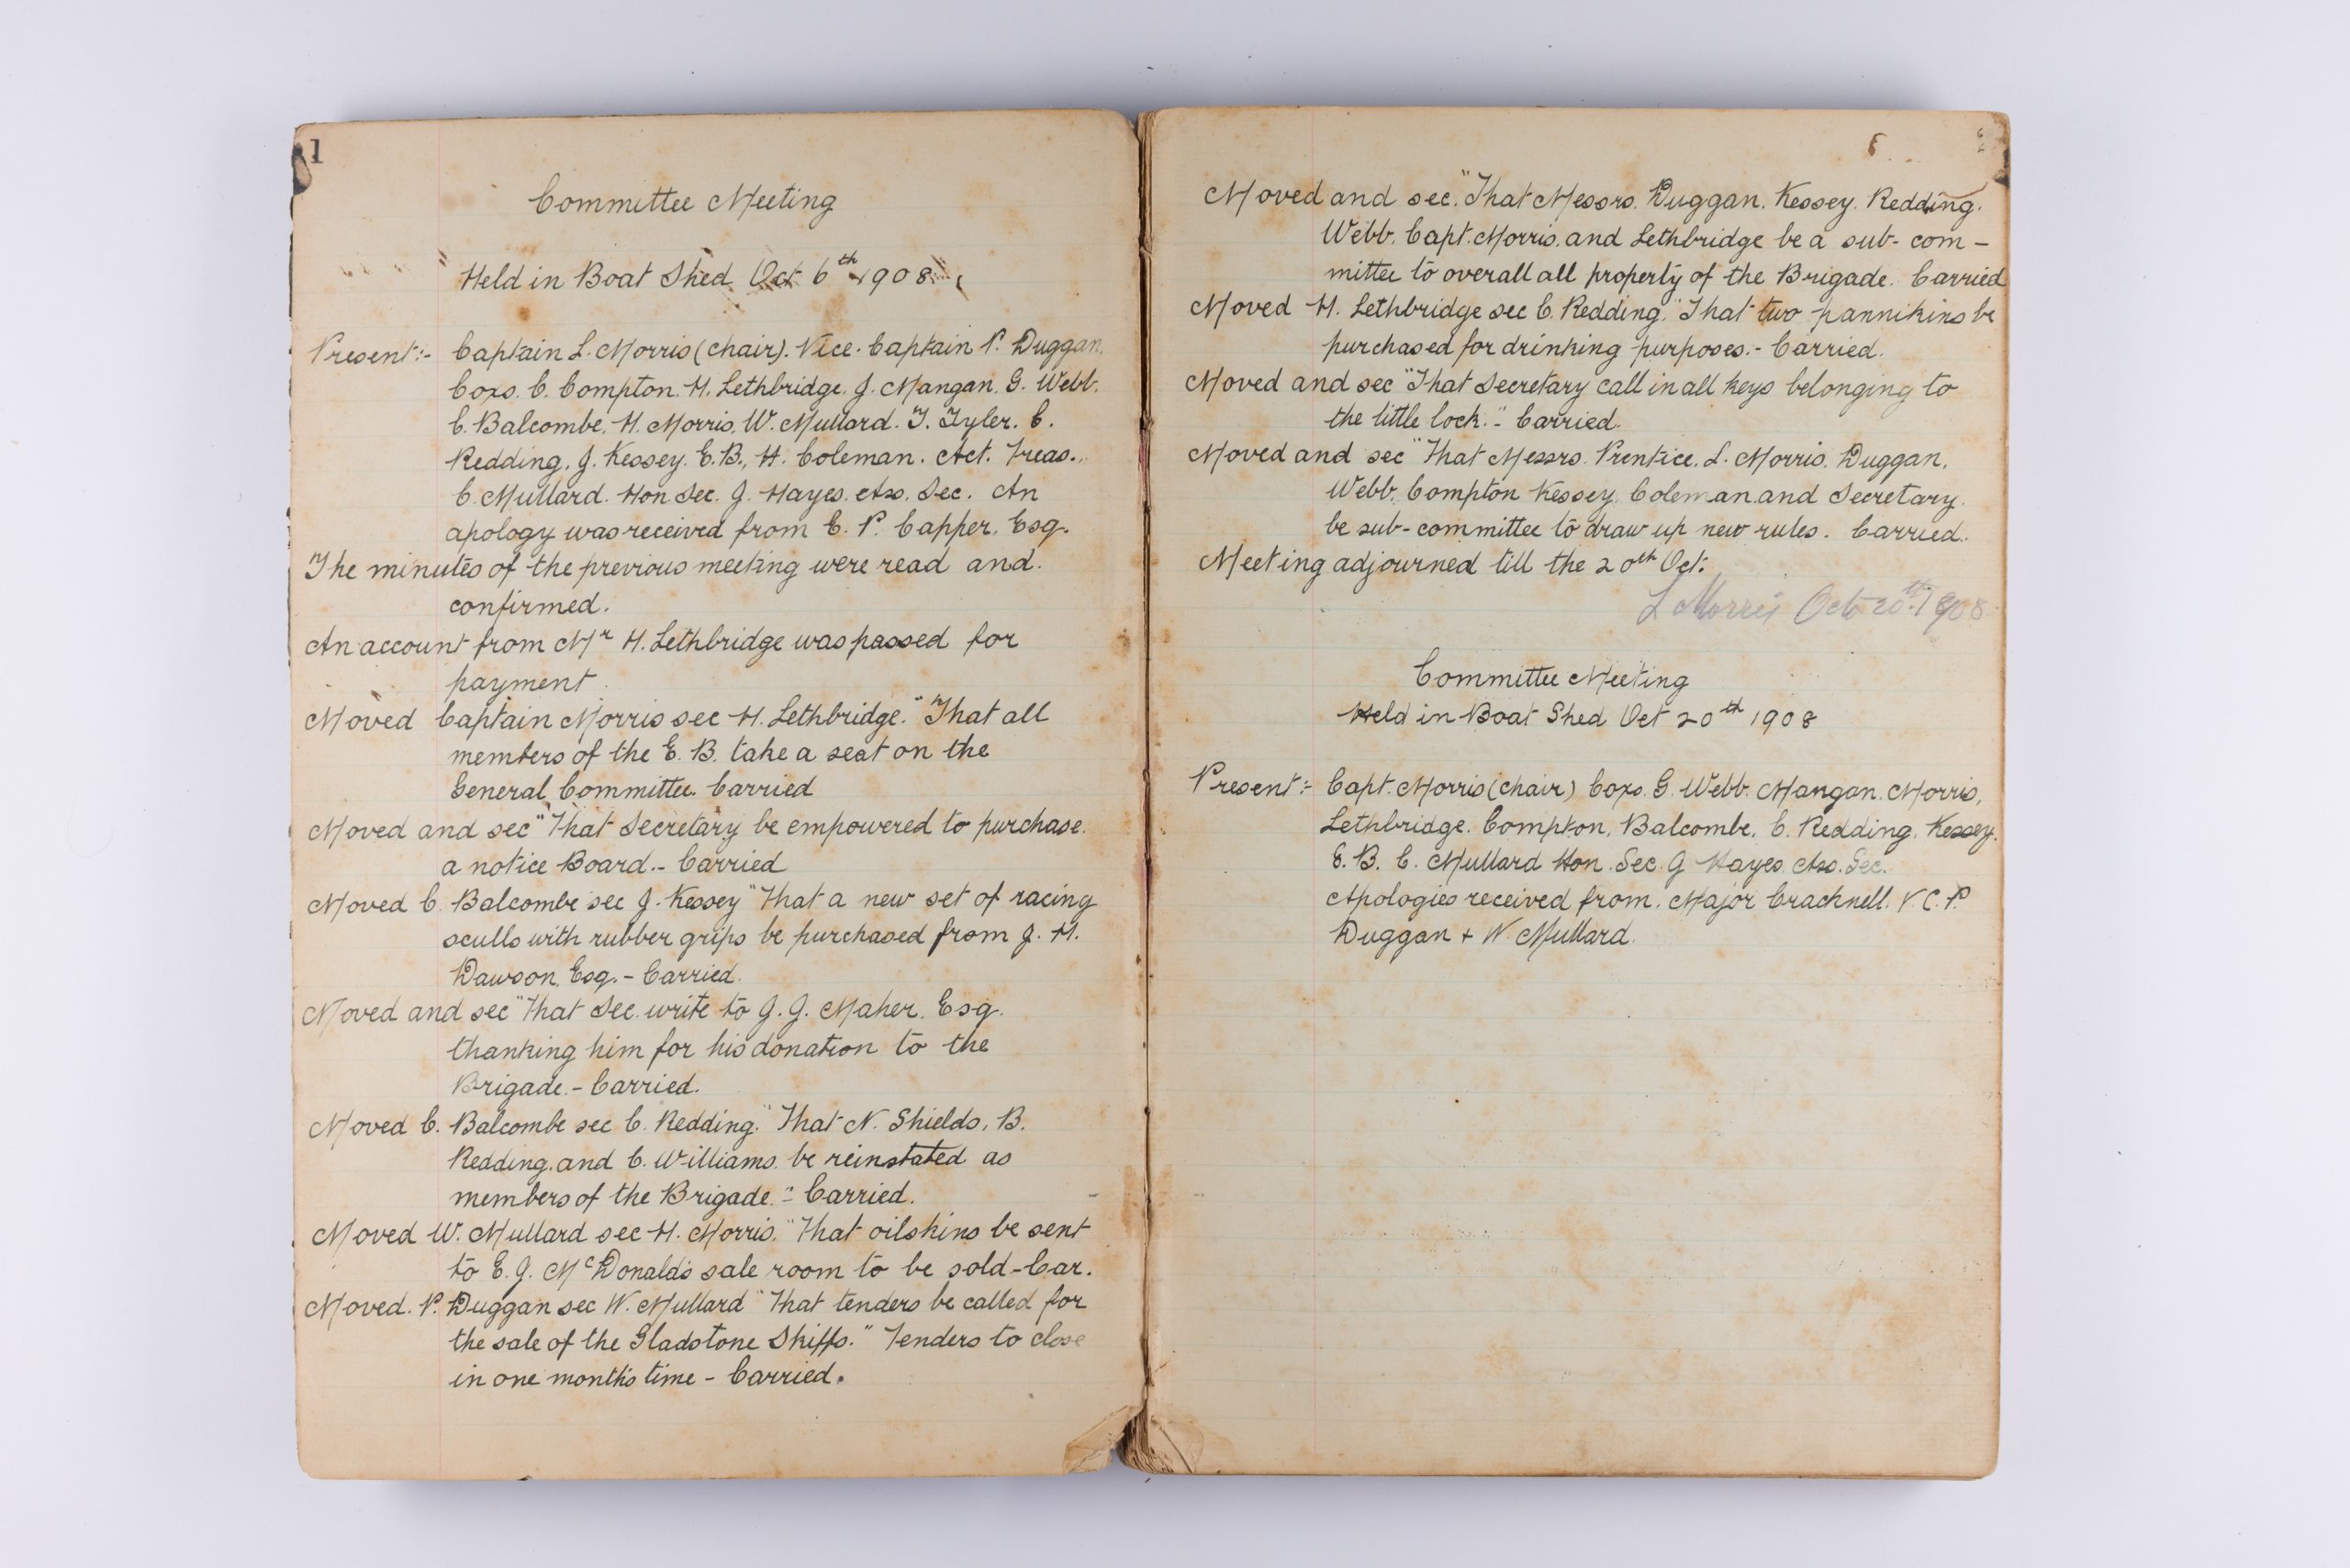 1
Committee Meeting
Held in Boat Shed Oct 6th 1908
Present:- Captain L. Morris (chair). Vice-Captain P. Duggan.
Coxs. C. Compton. H. Lethbridge. J. Mangan. G. Webb.
C. Balcombe. H. Morris. W. Mullard. T. Tyler. C.
Redding. J. Kessey. E.B., H. Coleman. Act. Treas.
C. Mullard. Hon Sec. J. Hayes. Ass. Sec. An
apology was received from E. P. Capper. Esq.
The minutes of the previous meeting were read and
confirmed.
An account from Mr H. Lethbridge was passed for
payment.
Moved Captain Morris sec H. Lethbridge. "That all
members of the E. B. take a seat on the
General Committee. Carried
Moved and sec "That Secretary be empowered to purchase
a notice Board.- Carried
Moved C. Balcombe sec J. Kessey "That a new set of racing
sculls with rubber grips be purchased from J. H.
Dawson, Esq.- Carried.
Moved and sec "That Sec. write to J. J. Maher. Esq.
thanking him for his donation to the
Brigade.- Carried.
Moved C. Balcombe sec C. Redding. "That N. Shields, B.
Redding. and C. Williams. be reinstated as
members of the Brigade."- Carried.
Moved W. Mullard sec H. Morris. "That oilskins be sent
to E. J. McDonald's sale room to be sold-Car.
Moved. P. Duggan sec W. Mullard "That tenders be called for
the sale of the Gladstone Skiffs." Tenders to close
in one month's time - Carried.
Moved and sec. "That Messrs. Duggan. Kessey. Redding.
Webb. Capt. Morris. and Lethbridge be a sub-com-
mittee to overall all property of the Brigade. Carried
Moved H. Lethbridge sec C. Redding. "That two pannikins be
purchased for drinking purposes.- Carried.
Moved and sec "That Secretary call in all keys belonging to
the little lock."- Carried.
Moved and sec "That Messrs. Prentice. L. Morris. Duggan.
Webb. Compton Kessey. Coleman. and Secretary.
be sub-committee to draw up new rules. Carried.
Meeting adjourned till the 20th Oct:
L Morris Oct 20th 1908
Committee Meeting
Held in Boat Shed Oct 20th 1908
Present:- Capt. Morris (chair) Coxs. G. Webb. Mangan. Morris,
Lethbridge. Compton, Balcombe. C. Redding. Kessey.
E. B. C. Mullard Hon. Sec. J Hayes. Ass. Sec.
Apologies received from. Major Cracknell. V. C. P.
Duggan + W. Mullard.